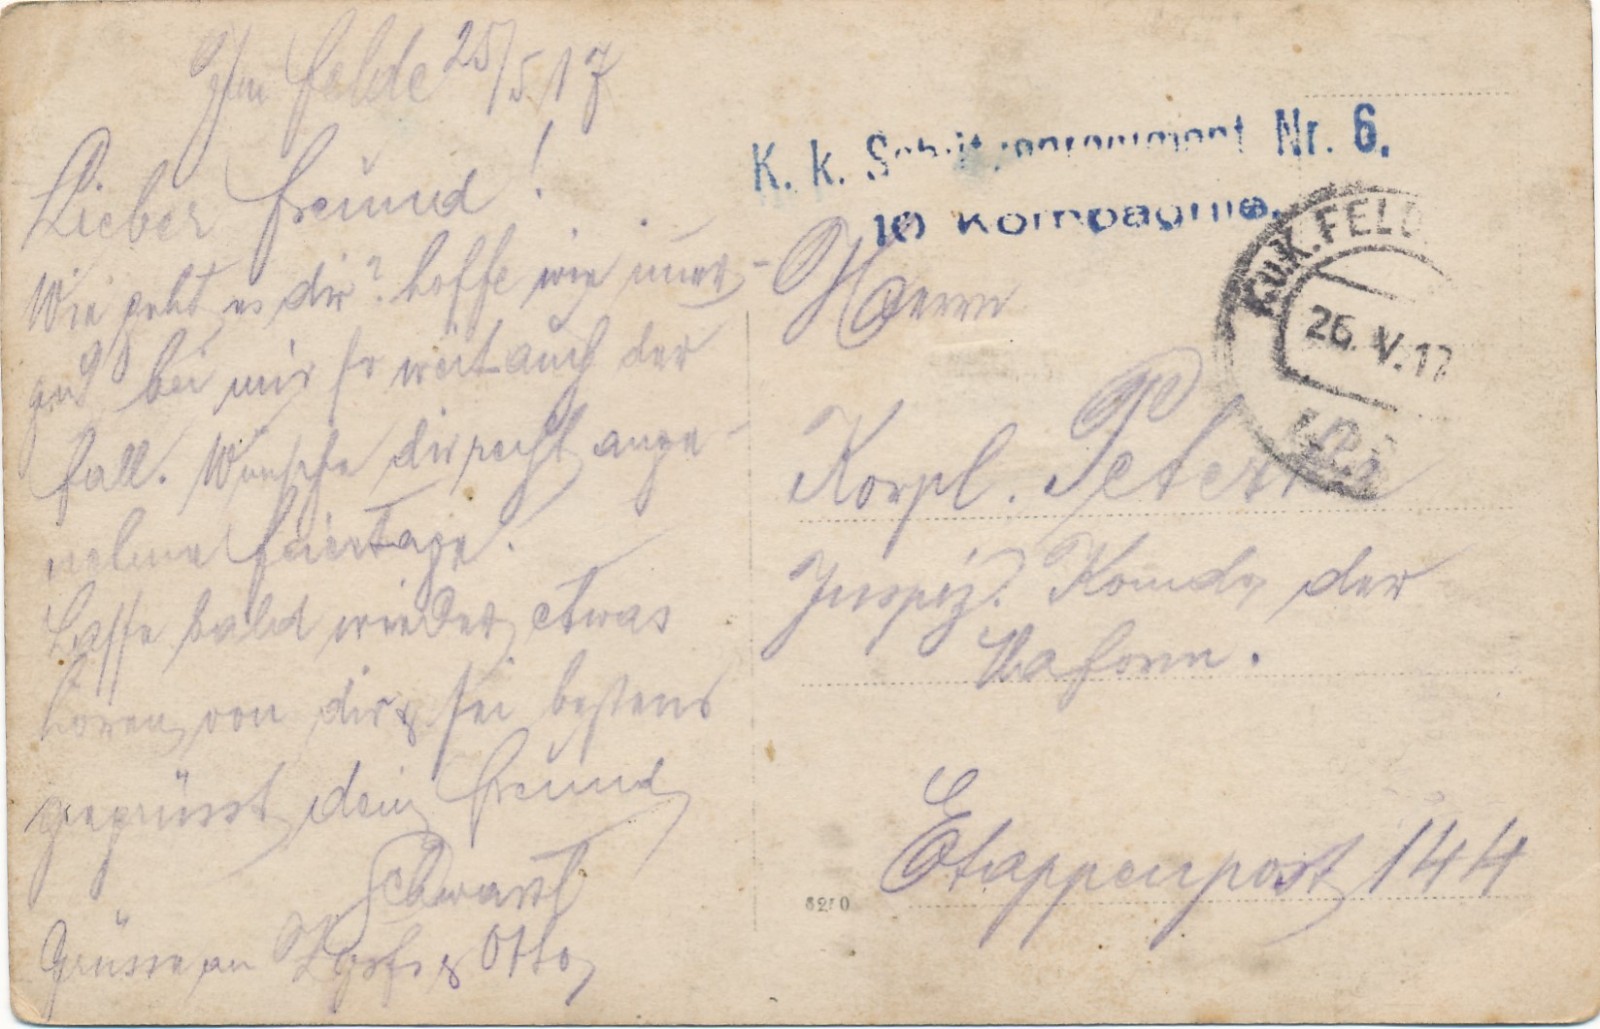 Im Felde 25/5 17
Lieber Freund!
Wie geht es dir? hoffe wie imer
gut bei mir ist weit auch der
Fall. Wünsche dir recht ange-
nehme Feiertage.
Lasse bald wieder etwas
hören von dir & sei bestens
gegrüsst dein Freund
Schwarz
Grüsse an & Otto
K. k. Schützenregiment Nr. 6.
10 Kompagnie.
K.u.K. FELD
26. V. 17
Herrn
Korpl. Peterka
Inspiz. Komdo der
6210
Etappenpost 144